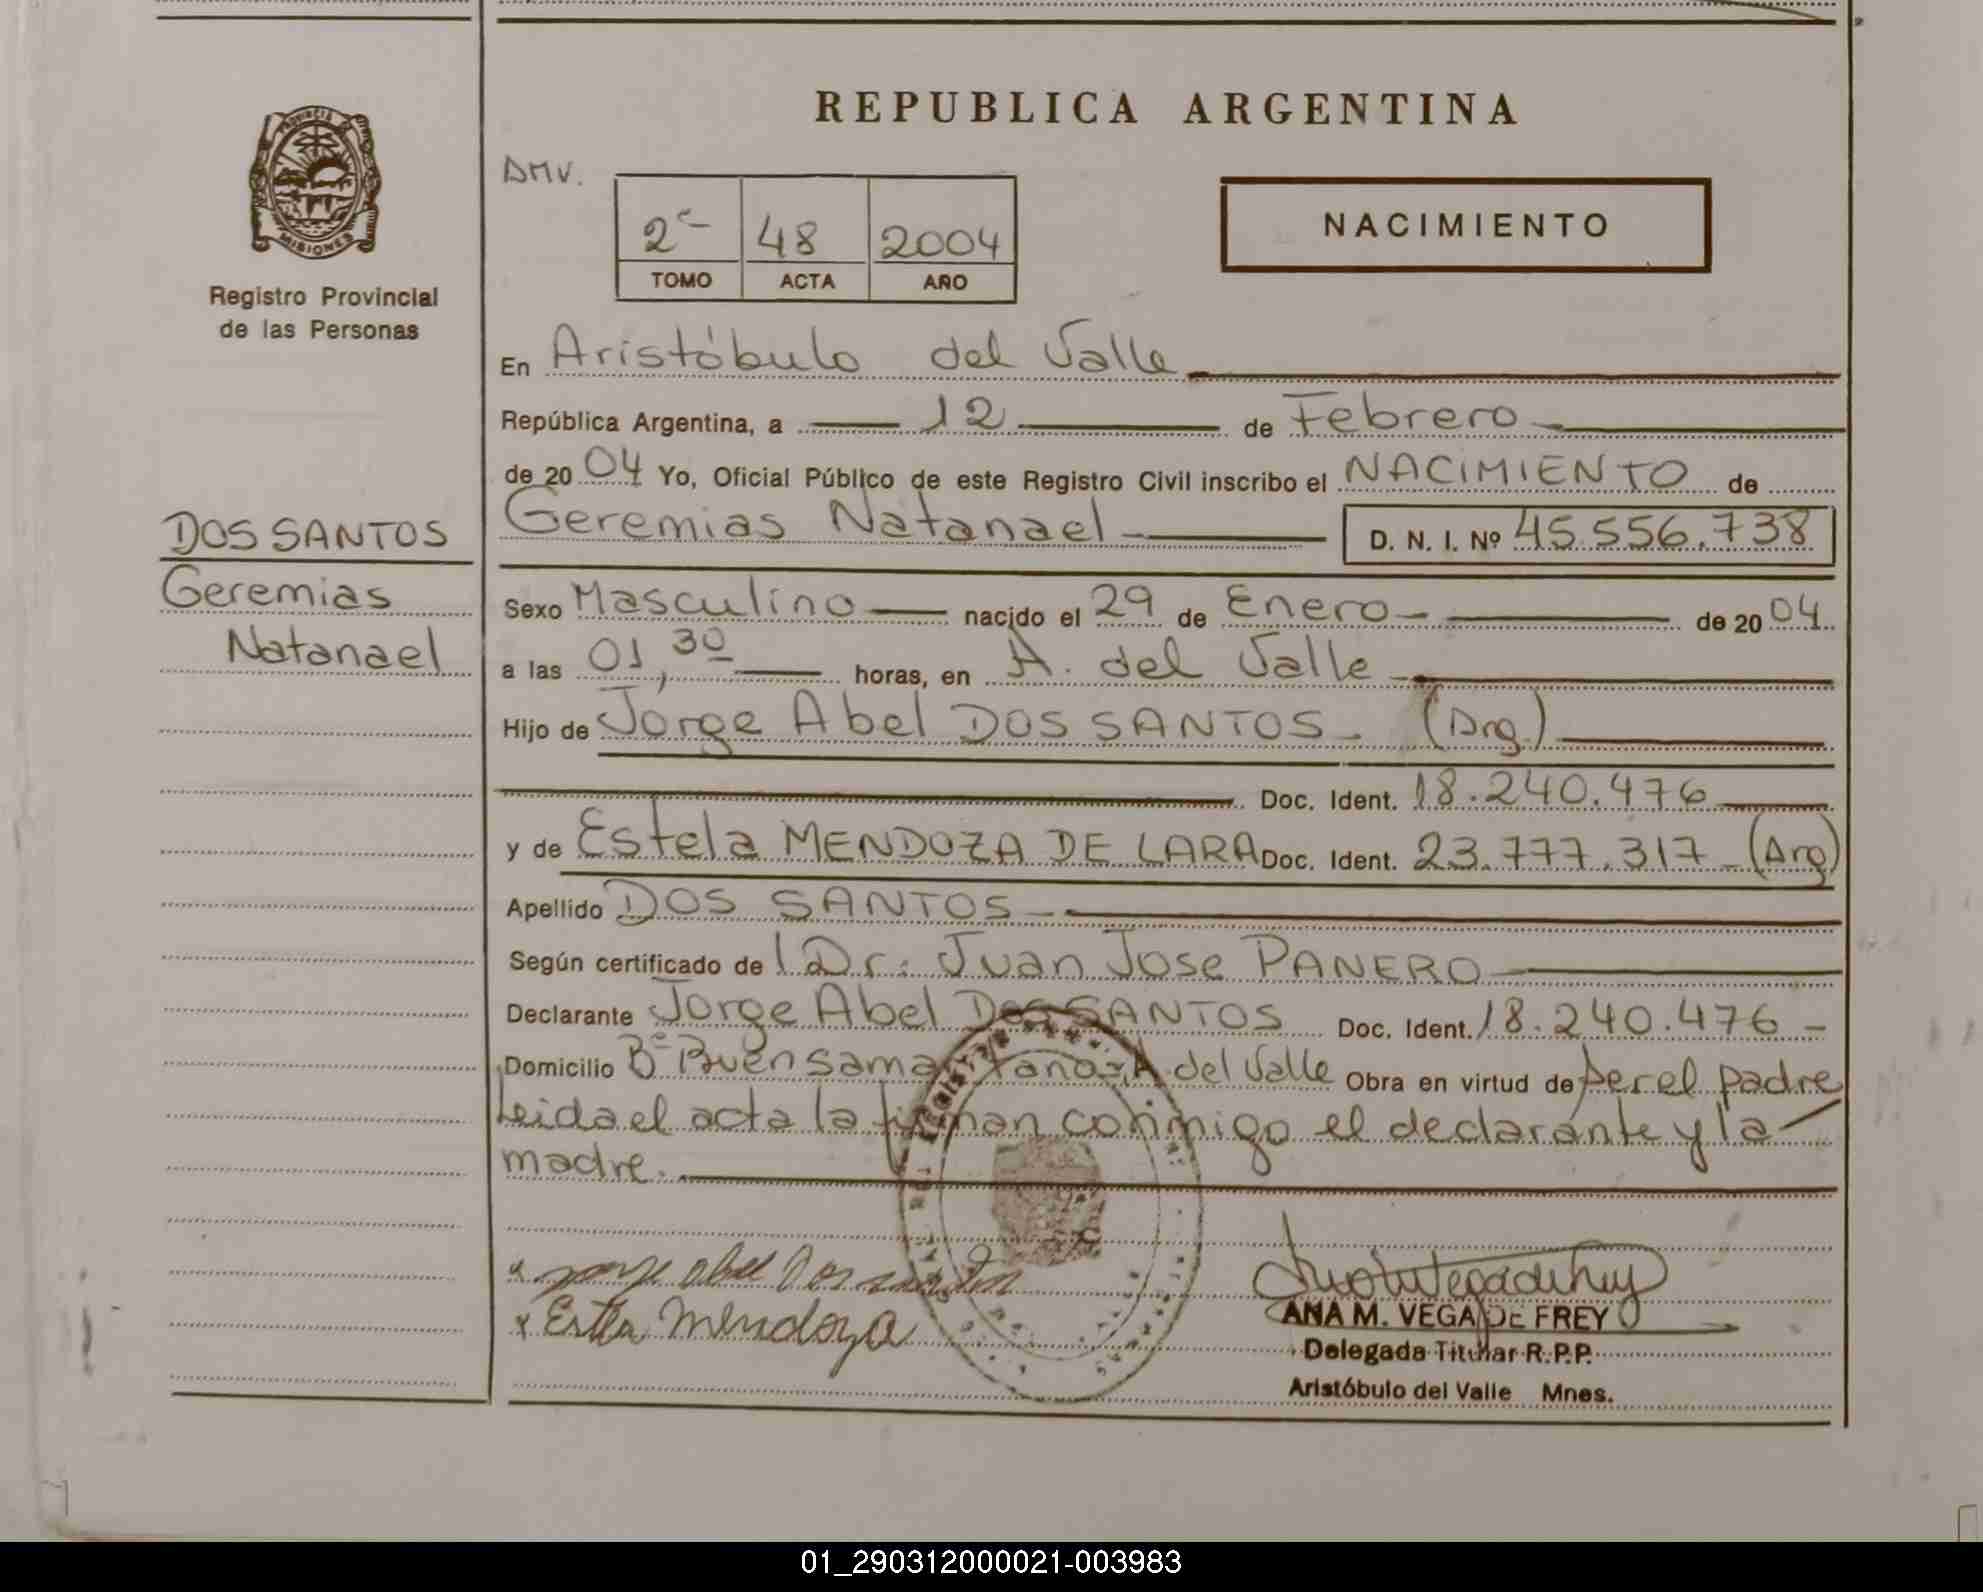 REPUBLICA ARGENTINA
PROVINCIA DE
MISIONES
Registro Provincial
de las Personas
DMV.
2º 48 2004
TOMO ACTA AÑO
NACIMIENTO
En Aristóbulo del Valle
República Argentina, a 12 de Febrero
de 20 04 Yo, Oficial Público de este Registro Civil inscribo el NACIMIENTO de
Geremias Natanael D. N. I. Nº 45.556.738
DOS SANTOS
Geremias
Natanael
Sexo Masculino nacido el 29 de Enero de 20 04
a las 01,30 horas, en A. del Valle
Hijo de Jorge Abel DOS SANTOS. (Arg.)
Doc. Ident. 18.240.476
y de Estela MENDOZA DE LARA Doc. Ident. 23.777.317 (Arg)
Apellido DOS SANTOS
Según certificado de l Dr. Juan Jose PANERO
Declarante Jorge Abel DOS SANTOS Doc. Ident. 18.240.476
Domicilio Bº Buen samaritano A. del Valle Obra en virtud de ser el padre
Leida el acta la firman conmigo el declarante y la
madre.
x Jorge abel Dos santos
x Estela Mendoza
ANA M. VEGA DE FREY
Delegada Titular R.P.P.
Aristóbulo del Valle Mnes.
01_290312000021-003983